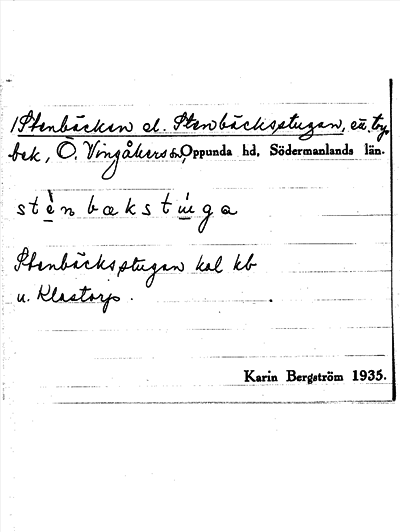 /Stenbäcken el. Stenbäcksstugan, eä, try
bek, Ö. Vingåkers sn, Oppunda hd, Södermanlands län.
stè̱n bækstu̱ga
Stenbäcksstugan kal kb
u. Klastorp.
Karin Bergström 1935.